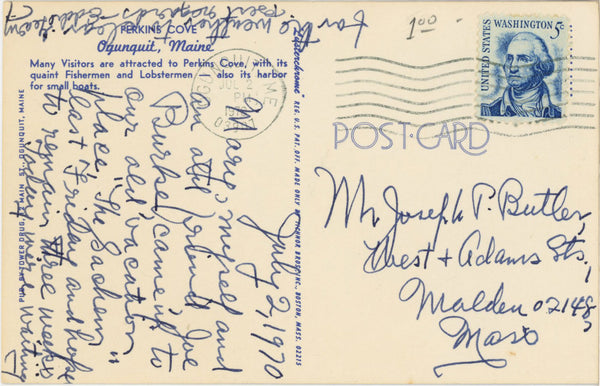 PERKINS COVE
Ogunquit, Maine
Many Visitors are attracted to Perkins Cove, with its
quaint Fishermen and Lobstermen - also its harbor
for small boats.
July 2, 1970
"Marie", myself and
an old friend Joe
Burke, came up to
our old vacation
place, "The Sachem"
last Friday and hope
to remain three weeks
today we're waiting
for the weather to clear
Best regards - Eddie
1.00
UNITED STATES
WASHINGTON 5c
ME
JUL 2
PM
POST CARD
Mr Joseph P. Butler,
West & Adams Sts,
Malden 02148,
Mass
REG. U.S. PAT. OFF. MADE ONLY BY
BOSTON, MASS. 02215
MAIN ST., OGUNQUIT, MAINE